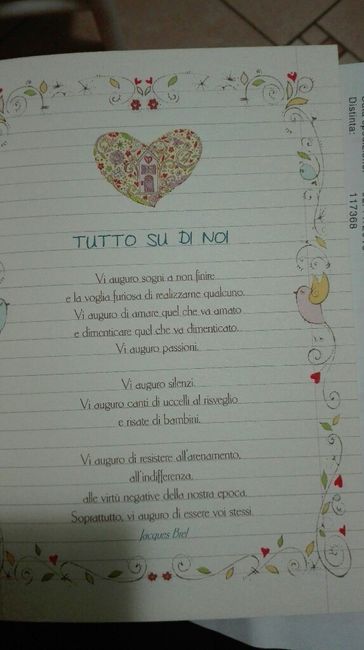 TUTTO SU DI NOI
Vi auguro sogni a non finire
e la voglia furiosa di realizzarne qualcuno.
Vi auguro di amare quel che va amato
e dimenticare quel che va dimenticato.
Vi auguro passioni.
Vi auguro silenzi.
Vi auguro canti di uccelli al risveglio
e risate di bambini.
Vi auguro di resistere all'arenamento,
all'indifferenza,
alle virtù negative della nostra epoca.
Soprattutto, vi auguro di essere voi stessi.
Jacques Brel
Distinta:
117368